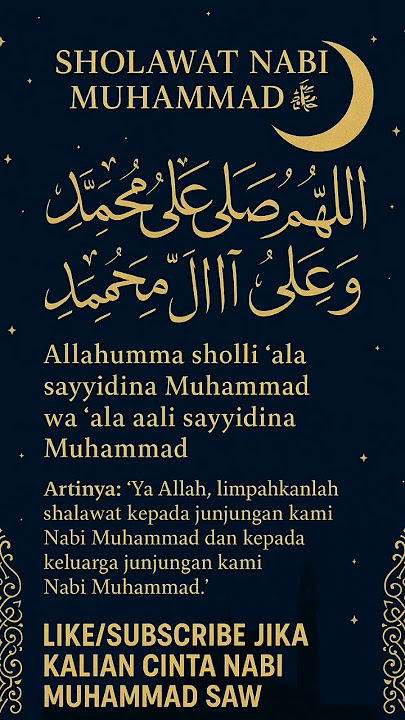 SHOLAWAT NABI
MUHAMMAD ﷺ
اللهُمُ صَلَى عَلىُ مُحمَِّدِ
وَعِلىُ آاالَ ّمِحَمِمِدِ
Allahumma sholli ‘ala
sayyidina Muhammad
wa ‘ala aali sayyidina
Muhammad
Artinya: ‘Ya Allah, limpahkanlah
shalawat kepada junjungan kami
Nabi Muhammad dan kepada
keluarga junjungan kami
Nabi Muhammad.’
LIKE/SUBSCRIBE JIKA
KALIAN CINTA NABI
MUHAMMAD SAW